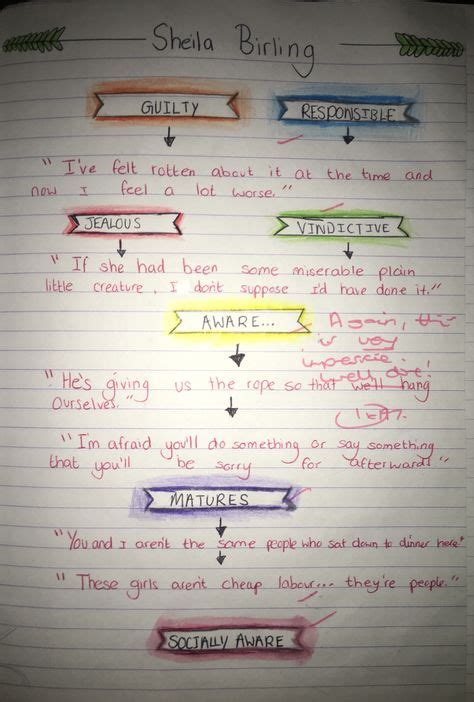 Sheila Birling
GUILTY RESPONSIBLE
"I've felt rotten about it at the time and
now I feel a lot worse."
JEALOUS VINDICTIVE
"If she had been some miserable plain
little creature, I don't suppose I'd have done it."
AWARE...
Again, this
is very
impressive.
well done!
"He's giving us the rope so that we'll hang
Ourselves."
"I'm afraid you'll do something or say something
that you'll be sorry for afterwards"
MATURES
"You and I aren't the same people who sat down to dinner here"
"These girls aren't cheap labour... they're people."
SOCIALLY AWARE